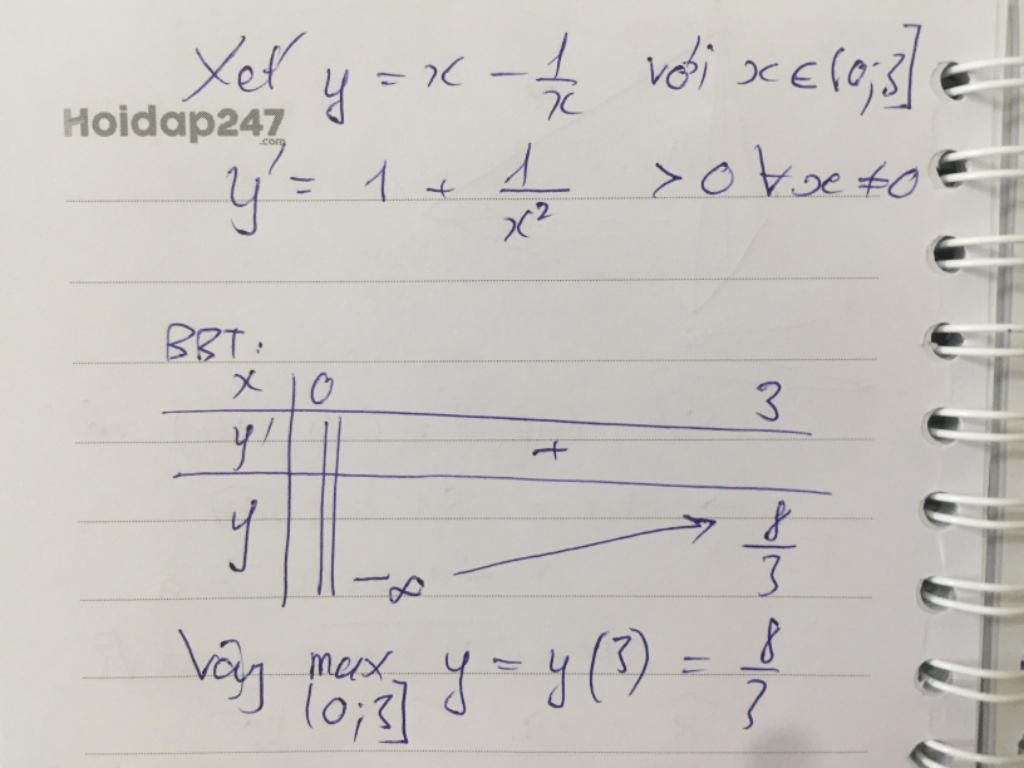 Xét y = x - 1/x với x ∈ (0;3]
Hoidap247
.com
y' = 1 + 1/x² > 0 ∀x ≠ 0
BBT:
x 0 3
y' +
y -∞ 8/3
Vậy max y = y(3) = 8/3
(0;3]